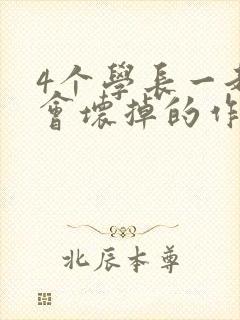 4个學長一起
會壞掉的作
北辰本尊